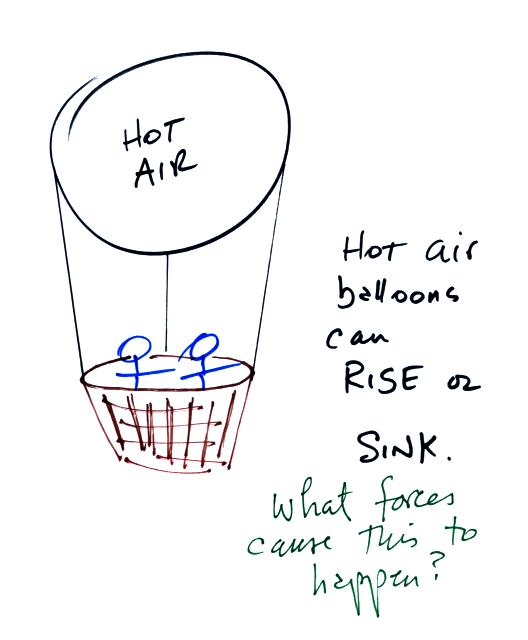 HOT
AIR
Hot air
balloons
can
RISE or
SINK.
What forces
cause this to
happen?